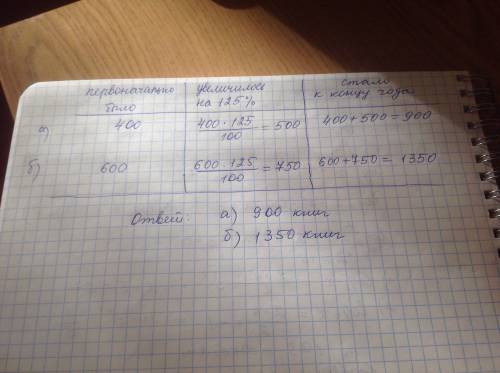 первоначально было | увеличилось на 125% | стало к концу года
а) 400 | 400 · 125 / 100 = 500 | 400 + 500 = 900
б) 600 | 600 · 125 / 100 = 750 | 600 + 750 = 1350
Ответ: а) 900 книг
б) 1350 книг